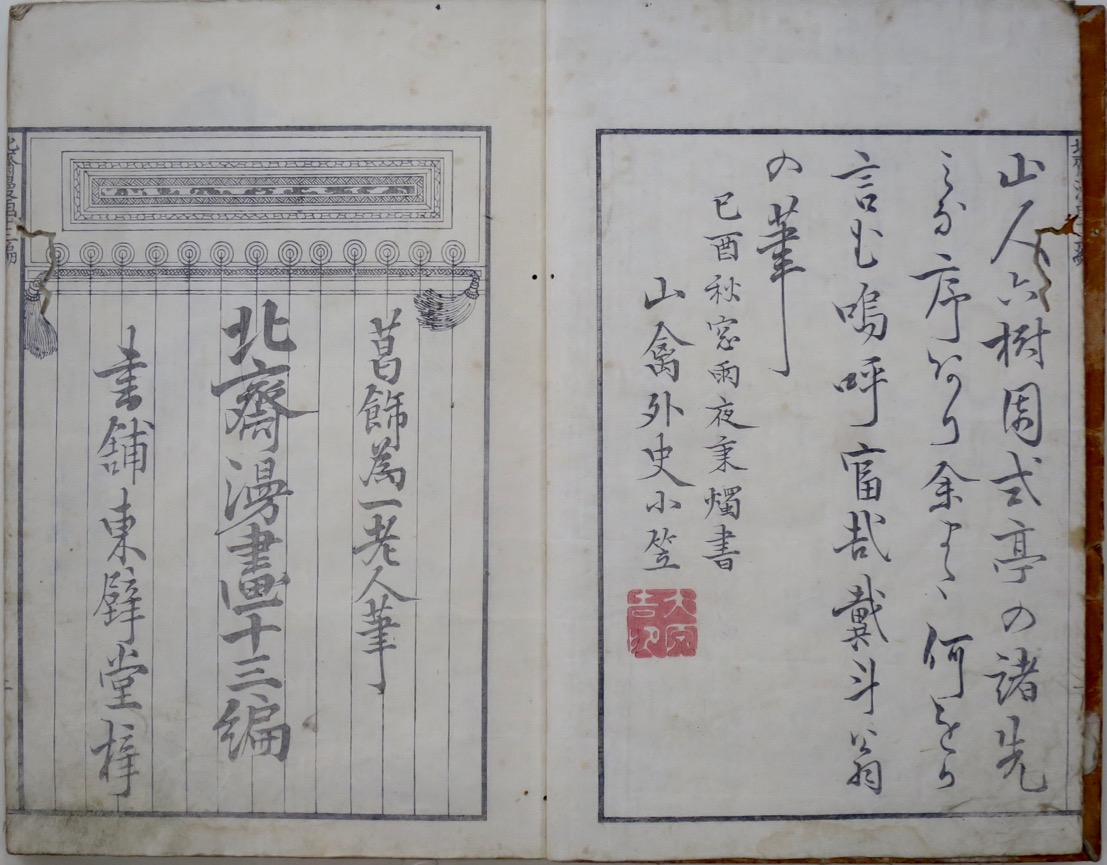 山人六樹園式亭の諸先
ミな序あり余何をか
言む嗚呼富哉戴斗翁
の筆
己酉秋窓雨夜秉燭書
山禽外史小笠
葛飾為一老人筆
北齋漫畫十三編
書舗東壁堂梓